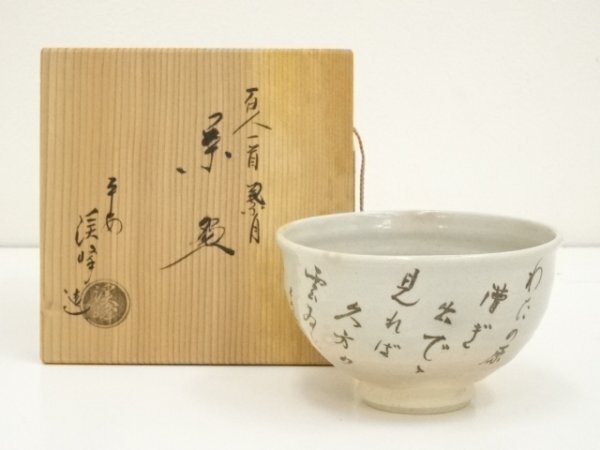 百人一首
茶碗
平安
造
わたの原
漕ぎ
出で
見れば
久方の
雲ゐ